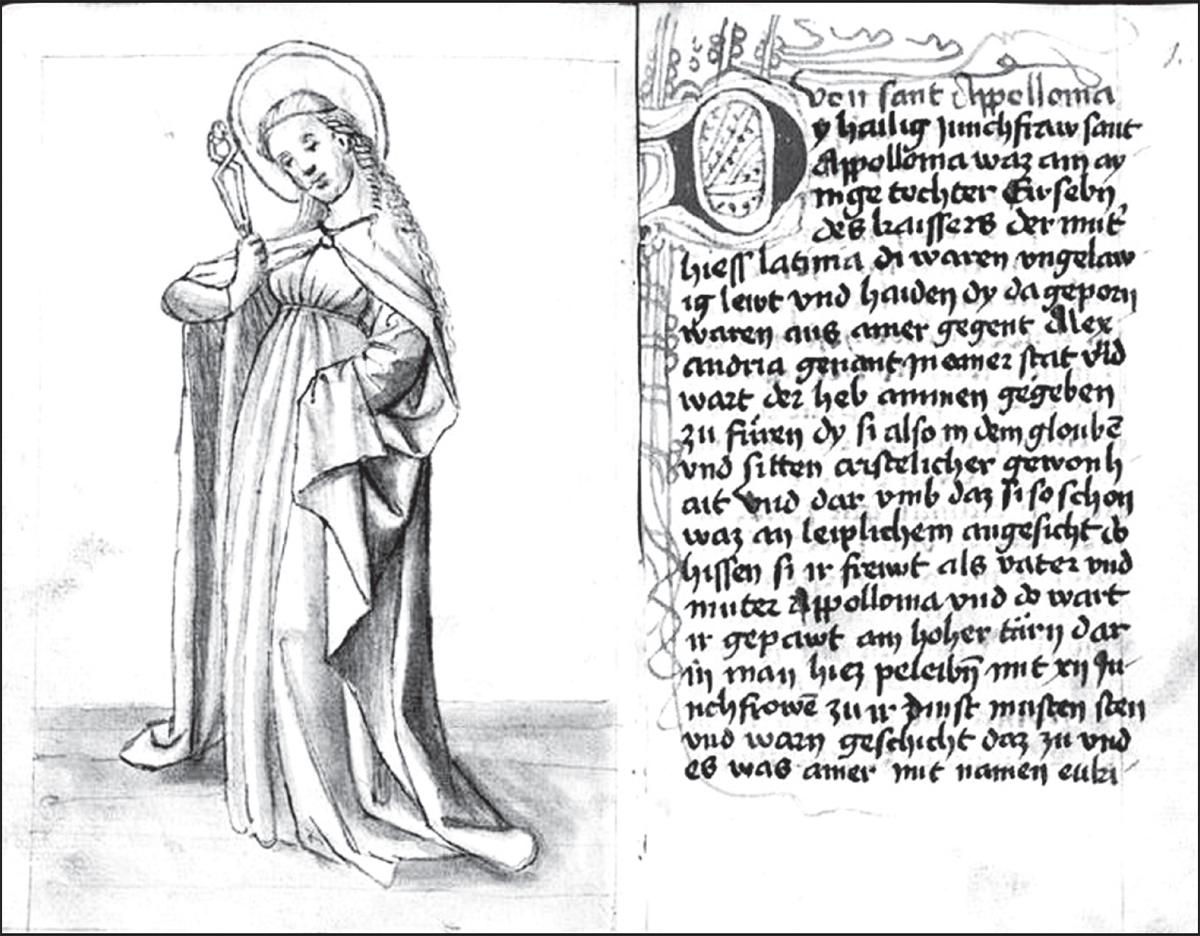 1.
von sant Appollonia
y hailig junchfraw sant
Appollonia waz ain ay
nige tochter Eusebij
des kaissers der mut
hiess latina di waren ungelaw
ig lewt vnd haiden dy da geporn
waren aus ainer gegent Alex
andria genant in einer stat vnd
wart der heb ammen gegeben
zu füren dy si also in dem gloubē
vnd sitten cristelicher gewonh
ait vnd dar vmb daz si so schon
waz an leiplichem angesicht do
hissen si ir frewt als vater vnd
muter Appollonia vnd do wart
ir gepawt ain hoher türn dar
in man hiez peleibn̄ mit xij Ju
nchfrowē zu ir dinst musten sten
vnd warn geschicht daz zu vnd
es was ainer mit namen